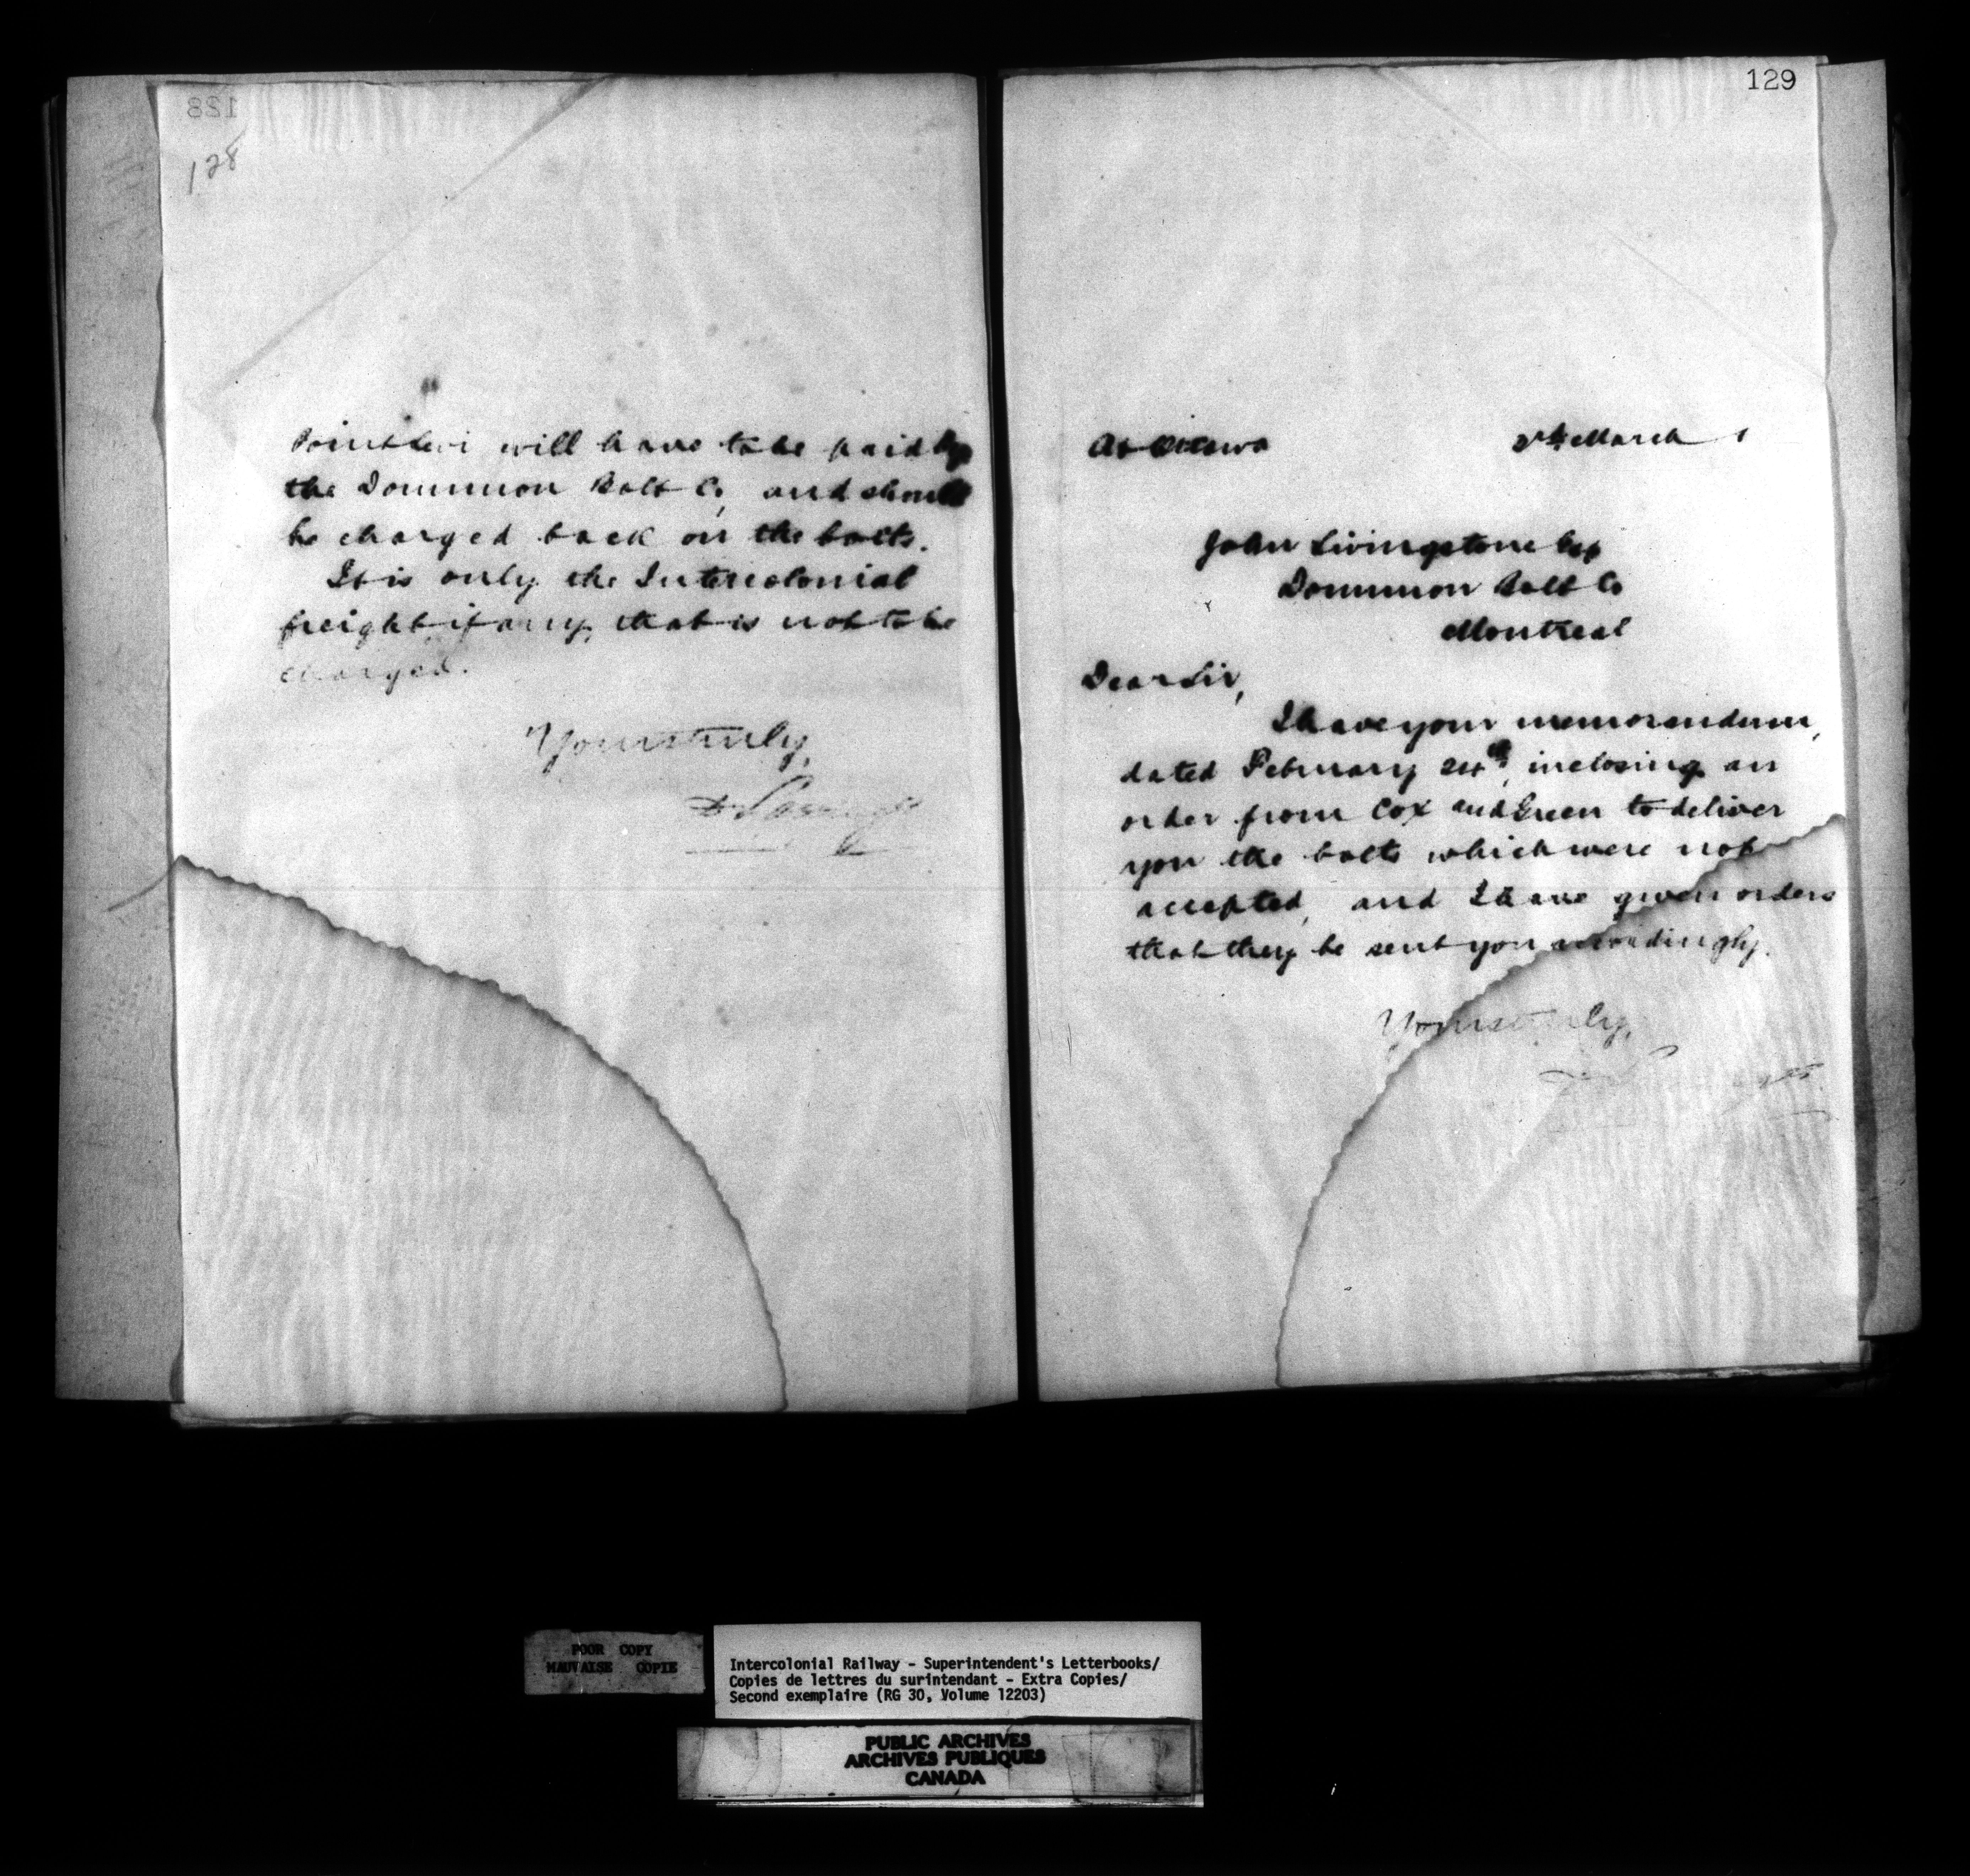 128
128
Point Levi will have to be paid by
the Dominion Bolt Co, and should
be charged back on the bolts.
It is only the Intercolonial
freight, if any, that is not to be
charged.
Yours truly,
129
At Ottawa
March
John Livingstone Esq
Dominion Bolt Co
Montreal
Dear Sir,
I have your memorandum,
dated February 24th, inclosing an
order from Cox and Green to deliver
you the bolts which were not
accepted, and I have given orders
that they be sent you accordingly.
Yours truly,
POOR COPY
MAUVAISE COPIE
Intercolonial Railway - Superintendent's Letterbooks/
Copies de lettres du surintendant - Extra Copies/
Second exemplaire (RG 30, Volume 12203)
PUBLIC ARCHIVES
ARCHIVES PUBLIQUES
CANADA